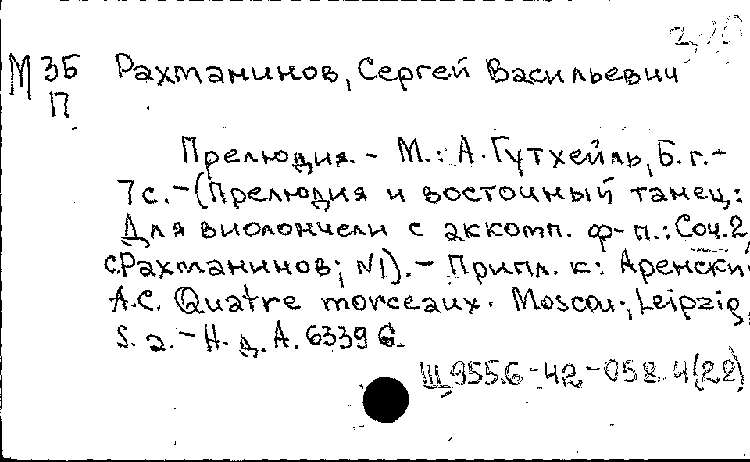 3,10
М 35 Рахманинов, Сергей Васильевич
П
Прелюдия. - М.: А. Гутхейль, Б. г. -
7 с. - (Прелюдия и восточный танец:
Для виолончели с аккомп. ф-п.: Соч. 2,
С. Рахманинов; N1). - Припл. к: Аренский
А.С. Quatre morceaux. Moscou; Leipzig,
S. a. - Н. д. А. 6339 G.
Щ 955.6-42-058.4(22)